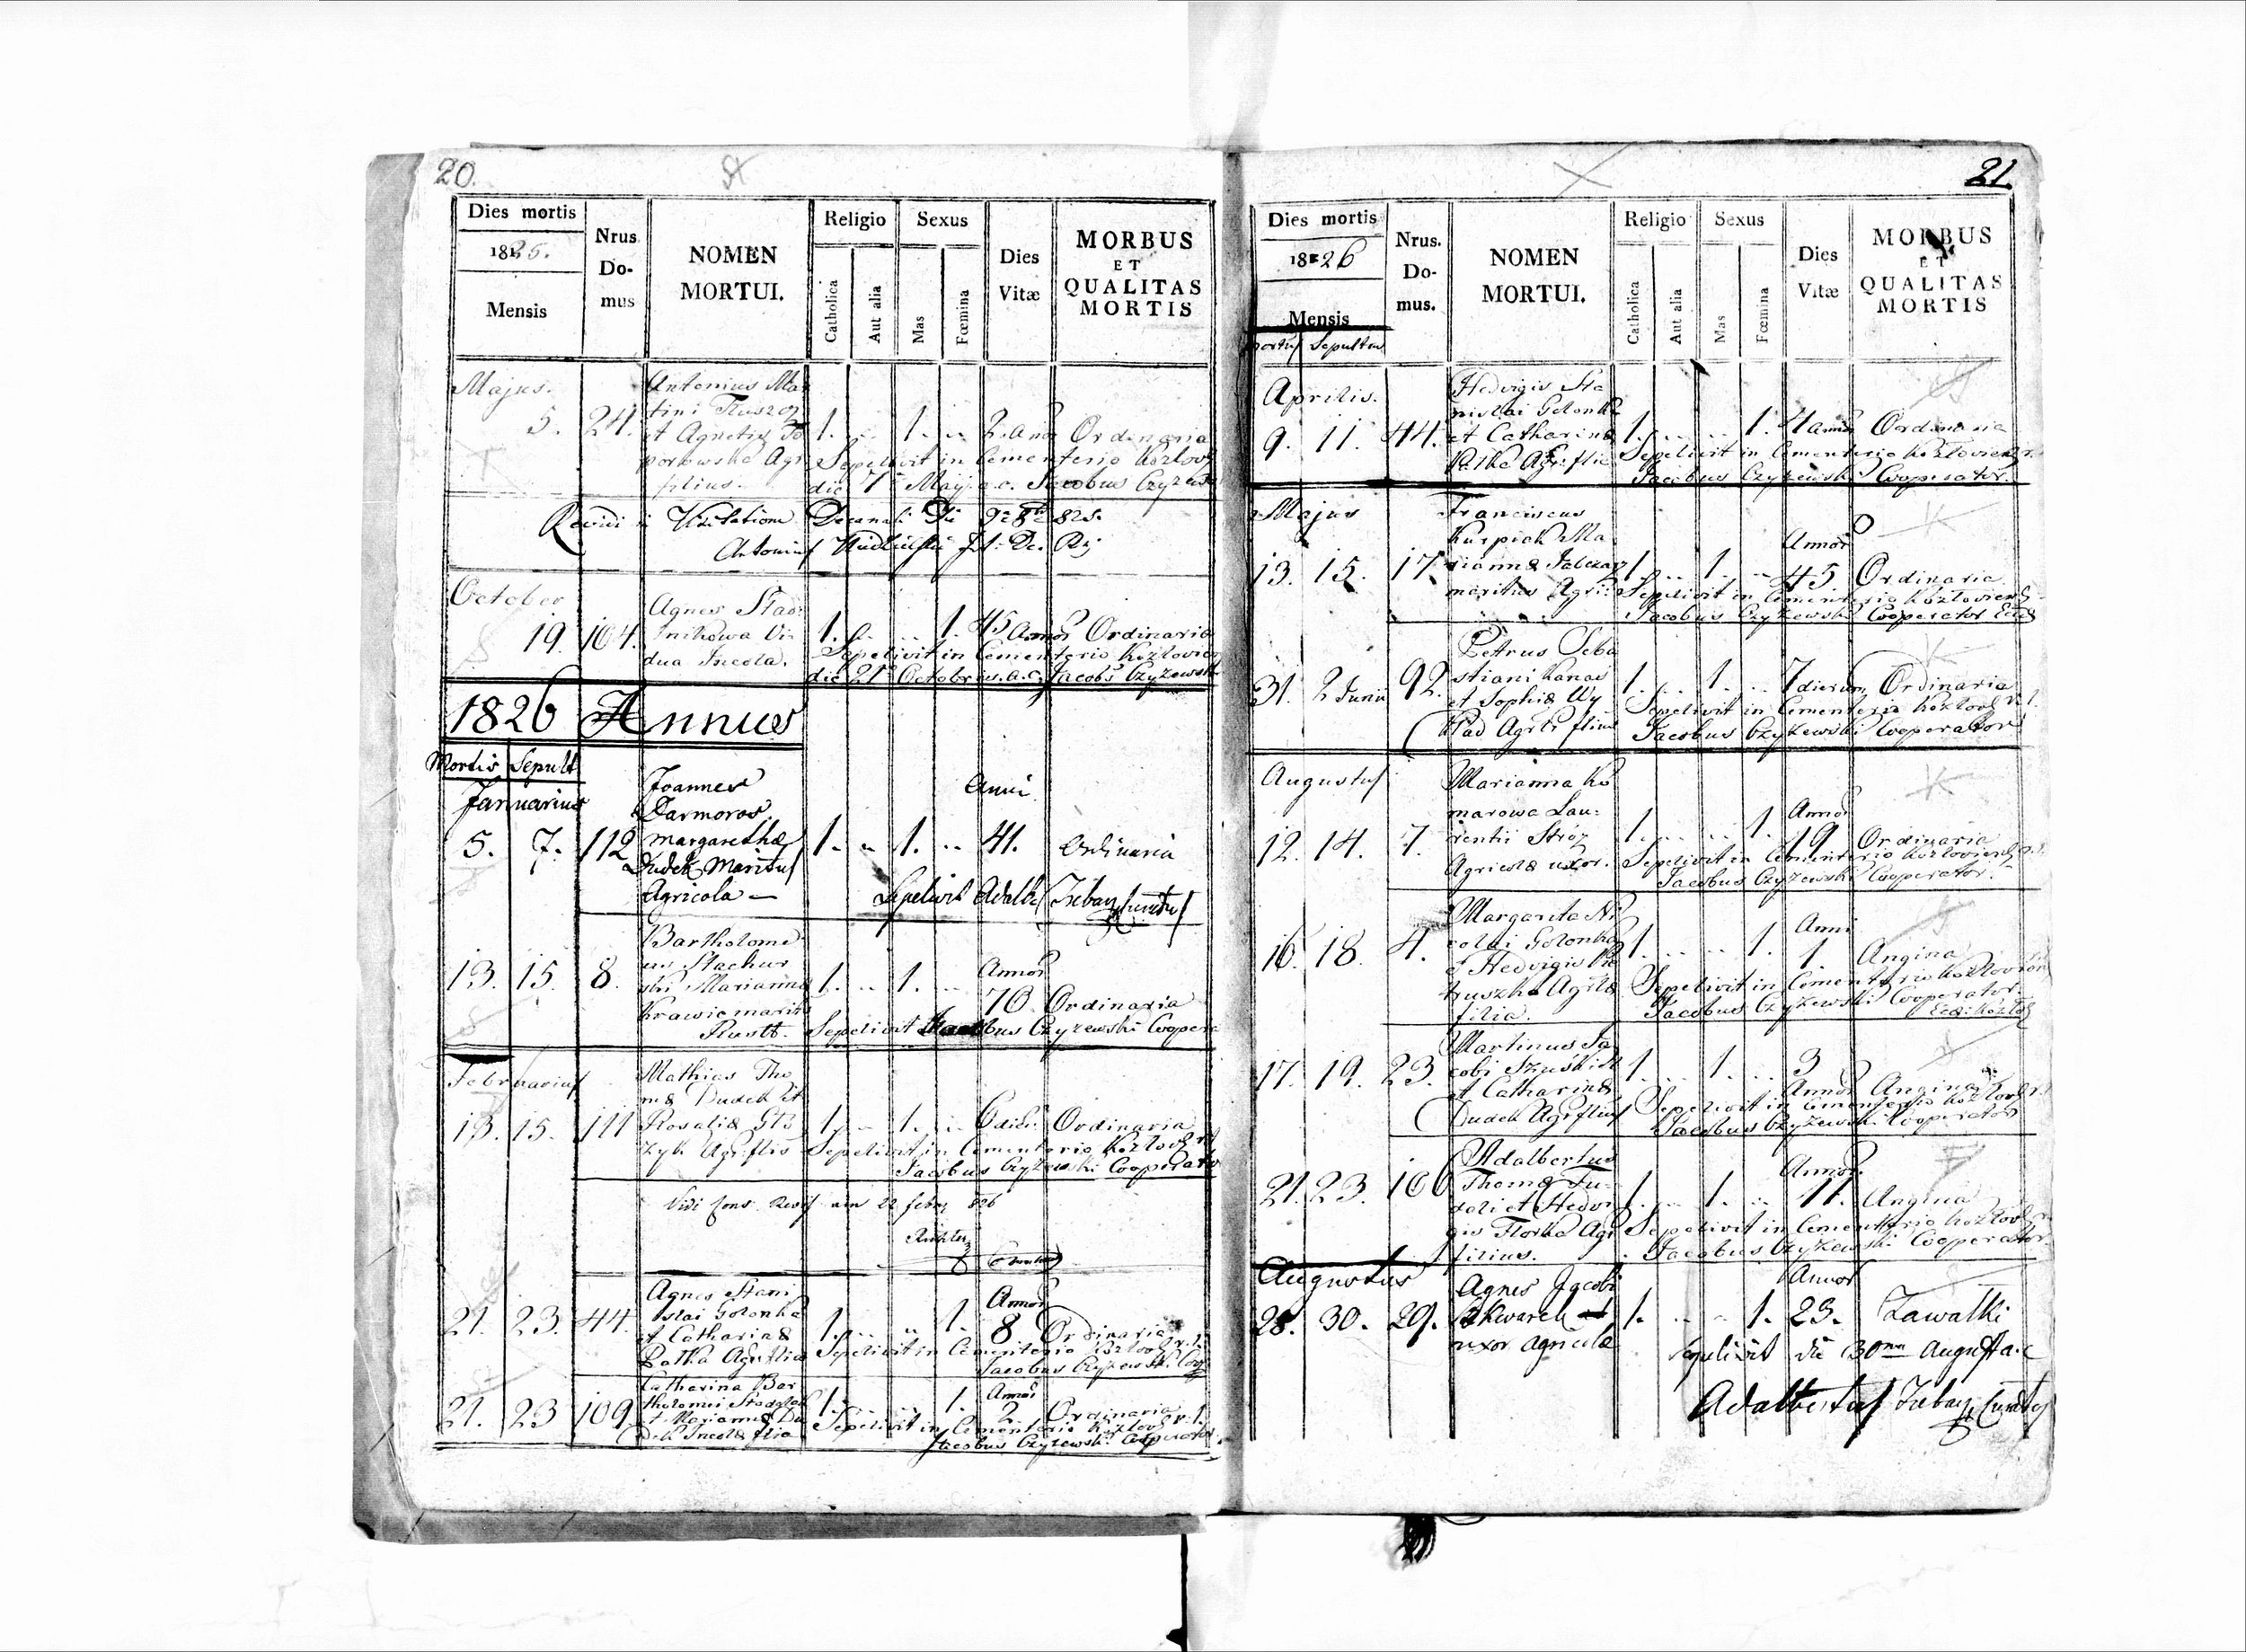 20.
Dies mortis
1825.
Mensis
Nrus
Do-
mus
NOMEN
MORTUI.
Religio
Catholica
Aut alia
Sexus
Mas
Fœmina
Dies
Vitæ
MORBUS
ET
QUALITAS
MORTIS
Majus.
5. 24.
Antonius Mar
tini
et Agnetis To
porowska Agr
filius.
1. .. 1. .. 2. Ann Ordinaria
Sepelivit in Cementerio Kozlov
die 7 Maij a.c. Jacobus Czyzew
Revidi in Visitatione Decanali Die
Antonius
October
19. 104.
Agnes Stad
nikowa Vi
dua Incola.
1. .. .. 1. 45 Annor Ordinaria
Sepelivit in Cementerio Kozlovien
die 21 Octobris. a.c. Jacobs Czyzewski
1826 Annus
Mortis Sepult
Januarius
5. 7. 112
Joannes
Darmoros
Margarethæ
Dudek Maritus
Agricola —
1. .. 1. .. Anni 41. Ordinaria
Sepelivit Adalb Curatus
13. 15. 8.
Bartholome
us Stachur
ski Marianna
Krawic marit
Rustt.
1. .. 1. .. Annor 70. Ordinaria
Sepelivit Jacobus Czyzewski Coopera
Februarius
13. 15. 111
Mathias Tho
mæ Dudek et
Rosaliæ Sto
zyk Agr flis
1. .. 1. .. 6 die. Ordinaria
Sepelivit in Cementerio Kozlov
Jacobus Czyzewski Cooperator
22 febr 826
21. 23. 44.
Agnes Stani
slai Golonka
et Catharinæ
Potka Agr filia
1. .. .. 1. Annor 8 Ordinaria
Sepelivit in Cementerio Kozlov
Jacobus Czyzewski Coop
21. 23 109
Catharina Bar
tholomei
et Mariannæ Du
dek Incolæ filia
1. .. .. 1. Annor 2. Ordinaria
Sepelivit in Cementerio Kozlov
Jacobus Czyzewski Cooperator
21.
Dies mortis
1826
Mensis
Sepultus
Nrus.
Do-
mus.
NOMEN
MORTUI.
Religio
Catholica
Aut alia
Sexus
Mas
Fœmina
Dies
Vitæ
MORBUS
ET
QUALITAS
MORTIS
Aprilis.
9. 11. 44.
Hedvigis Sta
nislai Golonka
et Catharinæ
Potka Agr filia
1. .. .. 1. 4 Annor Ordinaria
Sepelivit in Cementerio Kozloviens
Jacobus Czyzewski Cooperator.
Majus
13. 15. 17.
Franciscus
Kurpiel Ma
riannæ
maritus Agri
1. .. 1. .. Annor 45 Ordinaria
Sepelivit in Cementerio Kozloviens
Jacobus Czyzewski Cooperator
31. 2 Junii 92.
Petrus Seba
stiani Kanas
et Sophiæ Wy
klad Agrlæ flius
1. .. 1. .. 7 dierum Ordinaria
Sepelivit in Cementerio Kozlov
Jacobus Czyzewski Cooperator
Augustus
12. 14. 7.
Marianna Ko
marowa Lau:
rentii Stróz
Agricolæ uxor.
1. .. .. 1. Annor 19 Ordinaria
Sepelivit in Cementerio Kozloviens
Jacobus Czyzewski Cooperator.
16. 18. 4.
Margarita Ni
colai Golonka
et Hedvigis Pie
truszka Agrlæ
filia.
1. .. .. 1. Anni 1. Angina
Sepelivit in Cementerio Kozlovien
Jacobus Czyzewski Cooperator.
17. 19. 23.
Martinus Ja
cobi
et Catharinæ
Dudek Agr flius
1. .. 1. .. 3 Annor Angina
Sepelivit in Cementerio Kozlov
Jacobus Czyzewski Cooperator
21. 23. 106
Adalbertus
Thomæ
et Hedvi
gis Florka Agr
filius.
1. .. 1. .. Annor 11. Angina
Sepelivit in Cementerio Kozlov
Jacobus Czyzewski Cooperator.
Augustus
28. 30. 29.
Agnes Jacobi
Skwarek
uxor agricolæ
1. .. .. 1. Annor 23. Zawalki
sepelivit die 30 Augusti a.c
Adalbertus